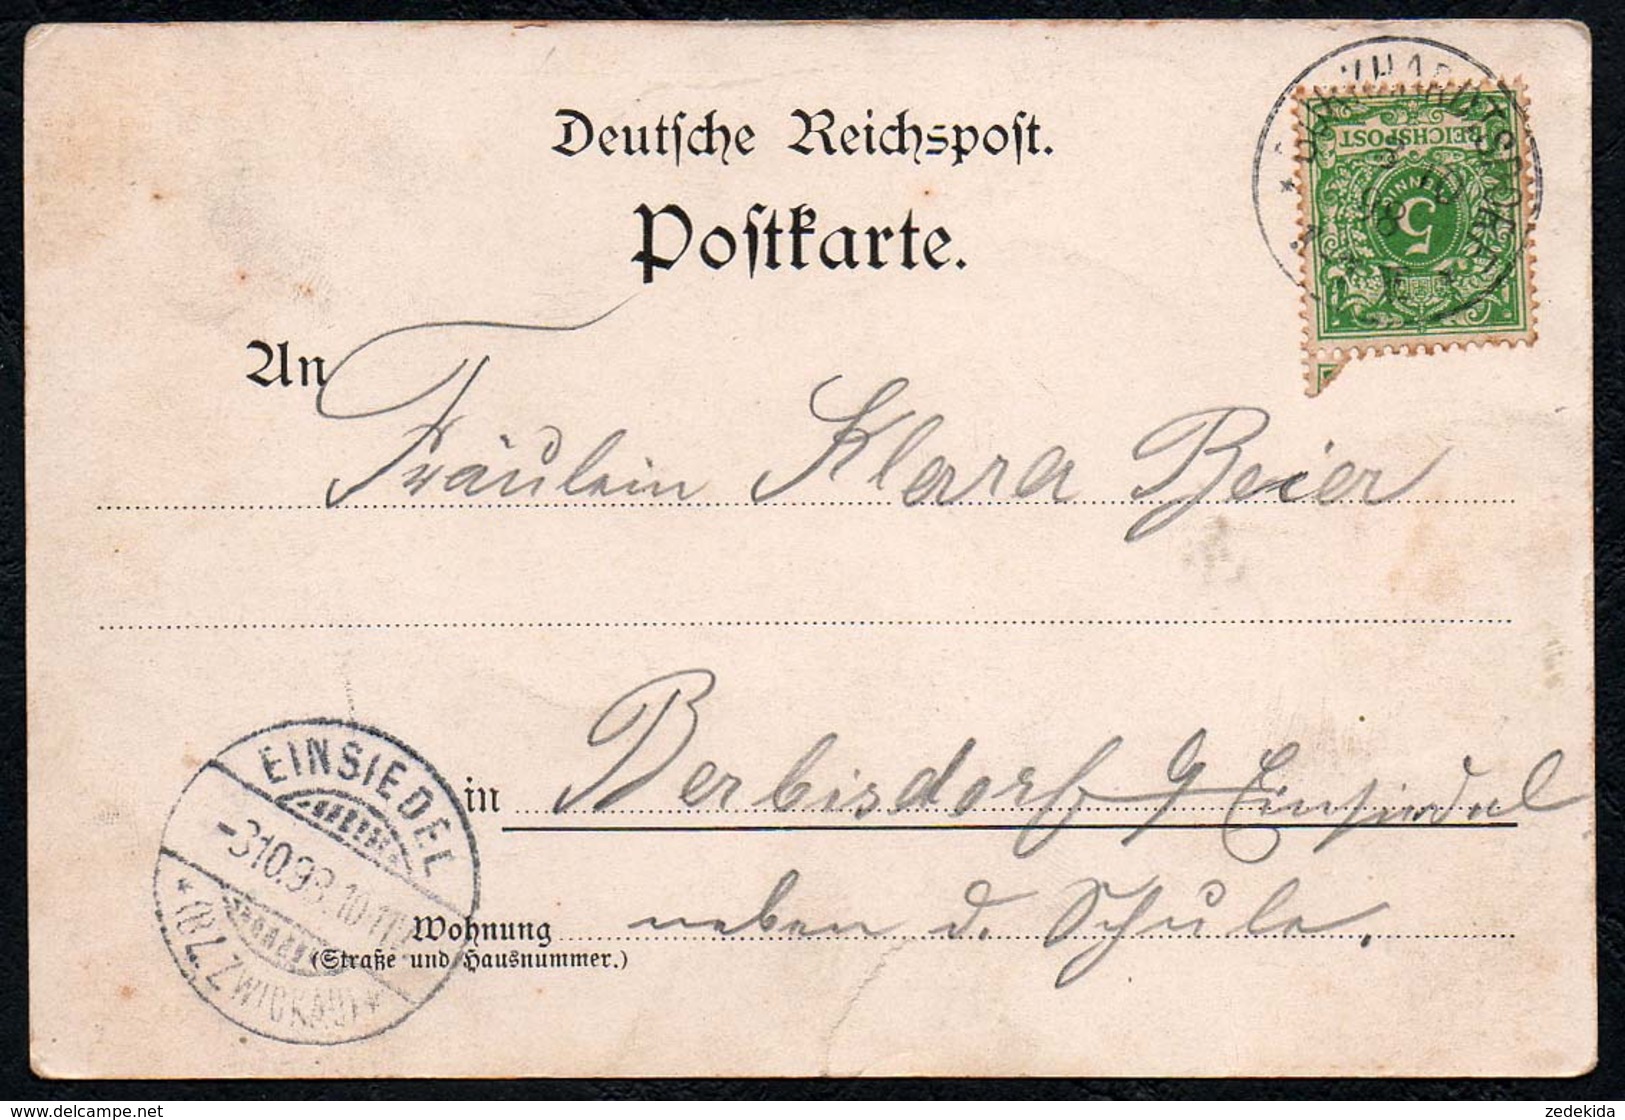 Deutsche Reichspost.
Postkarte.
BURKHARDTSDORF
3 10 98
REICHSPOST
PFENNIG
5
An
Fräulein Klara Beier
in Berbisdorf b/ Einsiedel
neben d. Schule.
Wohnung
(Straße und Hausnummer.)
EINSIEDEL
-3.10.98.10-11
(BZ. ZWICKAU)
zedekida